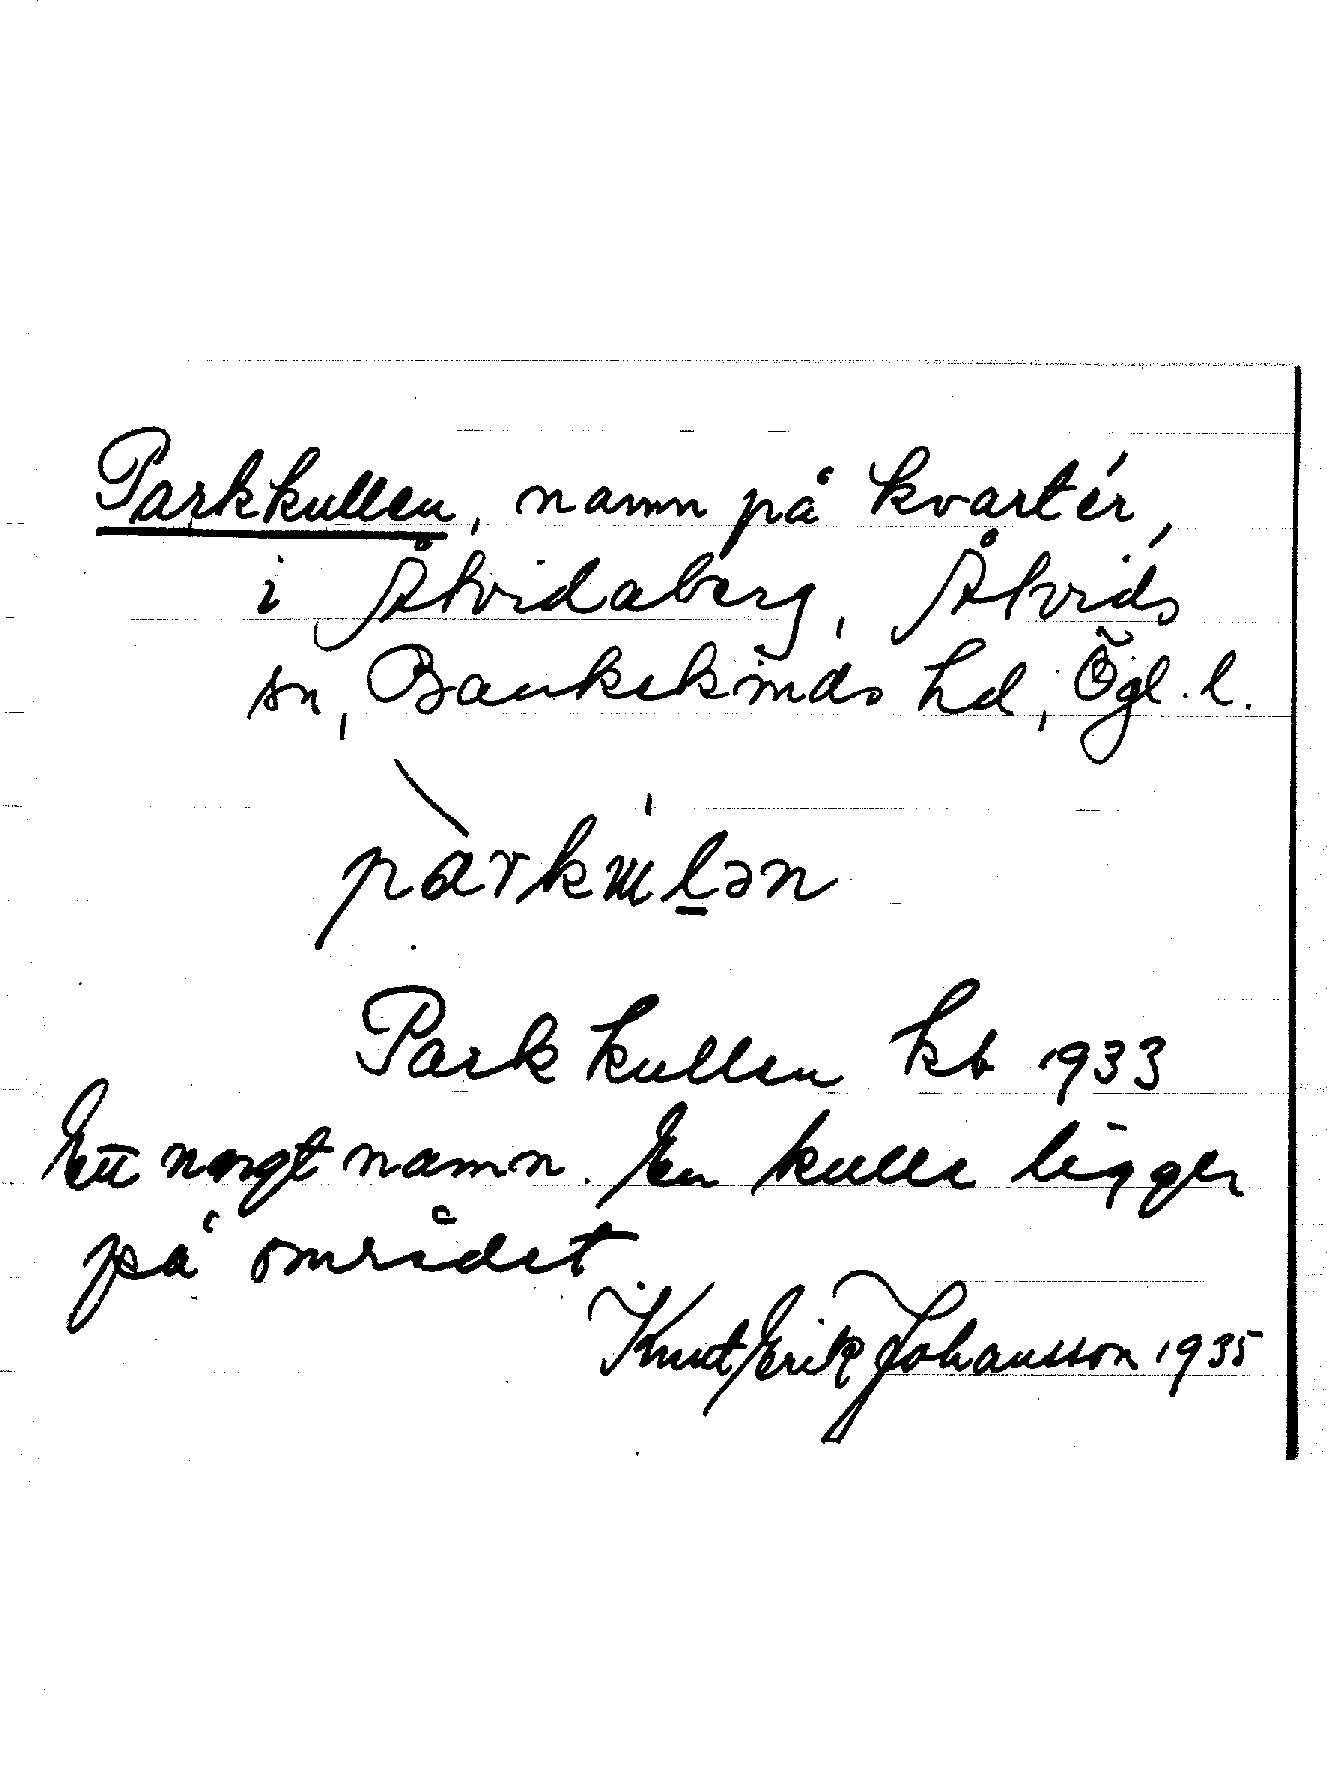 Parkkullen, namn på kvartér,
i Åtvidaberg, Åtvids
sn, Bankekinds hd, Ögl. l.
Parkkullen kb 1933
Ett nygt namn. En kulle ligger
på området
Knut Erik Johansson 1935